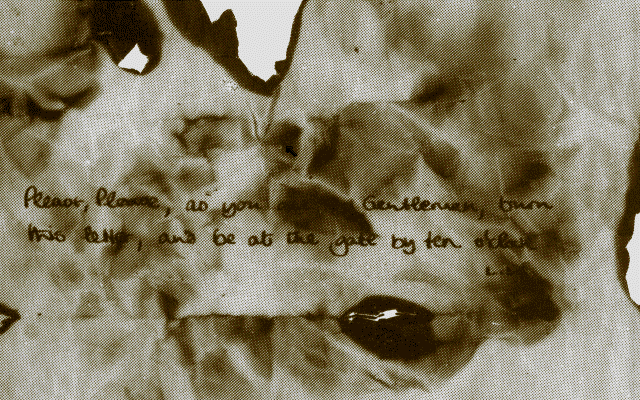 Please, Please, as you Gentleman, burn
this letter, and be at the gate by ten o'clock
L.L.